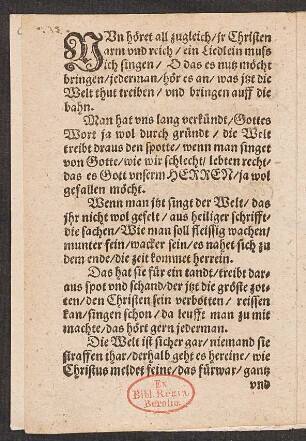 NVn höret all zugleich/jr Christen
arm vnd reich/ein Liedlein mufs
ich singen/ O das es nutz möcht
bringen/jederman/hör es an/ was jtzt die
Welt thut treiben/ vnd bringen auff die
bahn.
Man hat vns lang verkündt/Gottes
Wort ja wol durch gründt/ die Welt
treibt draus den spotte/ wenn man singet
von Gotte/wie wir schlecht/lebten recht/
das es Gott vnserm HERREN/ja wol
gefallen möcht.
Wenn man jtzt singt der Welt/das
jhr nicht wol gefelt/aus heiliger schrifft/
die sachen/Wie man soll fleissig wachen/
munter sein/wacker sein/es nahet sich zu
dem ende/die zeit kommet herrein.
Das hat sie für ein tandt/treibt dar-
aus spot vnd schand/der jtzt die gröste zot-
ten/den Christen sein verbotten/ reissen
kan/singen schon/da leufft man zu mit
machte/das hört gern jederman.
Die Welt ist sicher gar/niemand sie
straffen thar/derhalb geht es hereine/wie
Christus meldet feine/das fürwar/gantz
vnd
Ex
Bibl. Regia
Berolin.